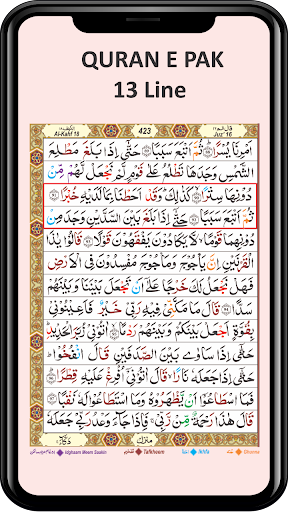 QURAN E PAK
13 Line
Al-Kahf 18
423
Juz' 16
اَمْرِنَا يُسْرًا ثُمَّ اَتْبَعَ سَبَبًا حَتّٰٓى اِذَا بَلَغَ مَطْلِعَ
الشَّمْسِ وَجَدَهَا تَطْلُعُ عَلٰى قَوْمٍ لَّمْ نَجْعَلْ لَّهُمْ مِّنْ
دُوْنِهَا سِتْرًا كَذٰلِكَ وَقَدْ اَحَطْنَا بِمَا لَدَيْهِ خُبْرًا
ثُمَّ اَتْبَعَ سَبَبًا حَتّٰٓى اِذَا بَلَغَ بَيْنَ السَّدَّيْنِ وَجَدَ مِنْ
دُوْنِهِمَا قَوْمًا لَّا يَكَادُوْنَ يَفْقَهُوْنَ قَوْلًا قَالُوْا يٰذَا
الْقَرْنَيْنِ اِنَّ يَاْجُوْجَ وَمَاْجُوْجَ مُفْسِدُوْنَ فِى الْاَرْضِ
فَهَلْ نَجْعَلُ لَكَ خَرْجًا عَلٰٓى اَنْ تَجْعَلَ بَيْنَنَا وَبَيْنَهُمْ
سَدًّا قَالَ مَا مَكَّنِّىْ فِيْهِ رَبِّىْ خَيْرٌ فَاَعِيْنُوْنِىْ
بِقُوَّةٍ اَجْعَلْ بَيْنَكُمْ وَبَيْنَهُمْ رَدْمًا اٰتُوْنِىْ زُبَرَ الْحَدِيْدِ
حَتّٰٓى اِذَا سَاوٰى بَيْنَ الصَّدَفَيْنِ قَالَ انْفُخُوْا
حَتّٰٓى اِذَا جَعَلَهٗ نَارًا قَالَ اٰتُوْنِىْٓ اُفْرِغْ عَلَيْهِ قِطْرًا
فَمَا اسْطَاعُوْٓا اَنْ يَّظْهَرُوْهُ وَمَا اسْتَطَاعُوْا لَهٗ نَقْبًا
قَالَ هٰذَا رَحْمَةٌ مِّنْ رَّبِّىْ فَاِذَا جَآءَ وَعْدُ رَبِّىْ جَعَلَهٗ
Idghaam Meem Saakin
Tafkheem
Ikhfa
Ghunna